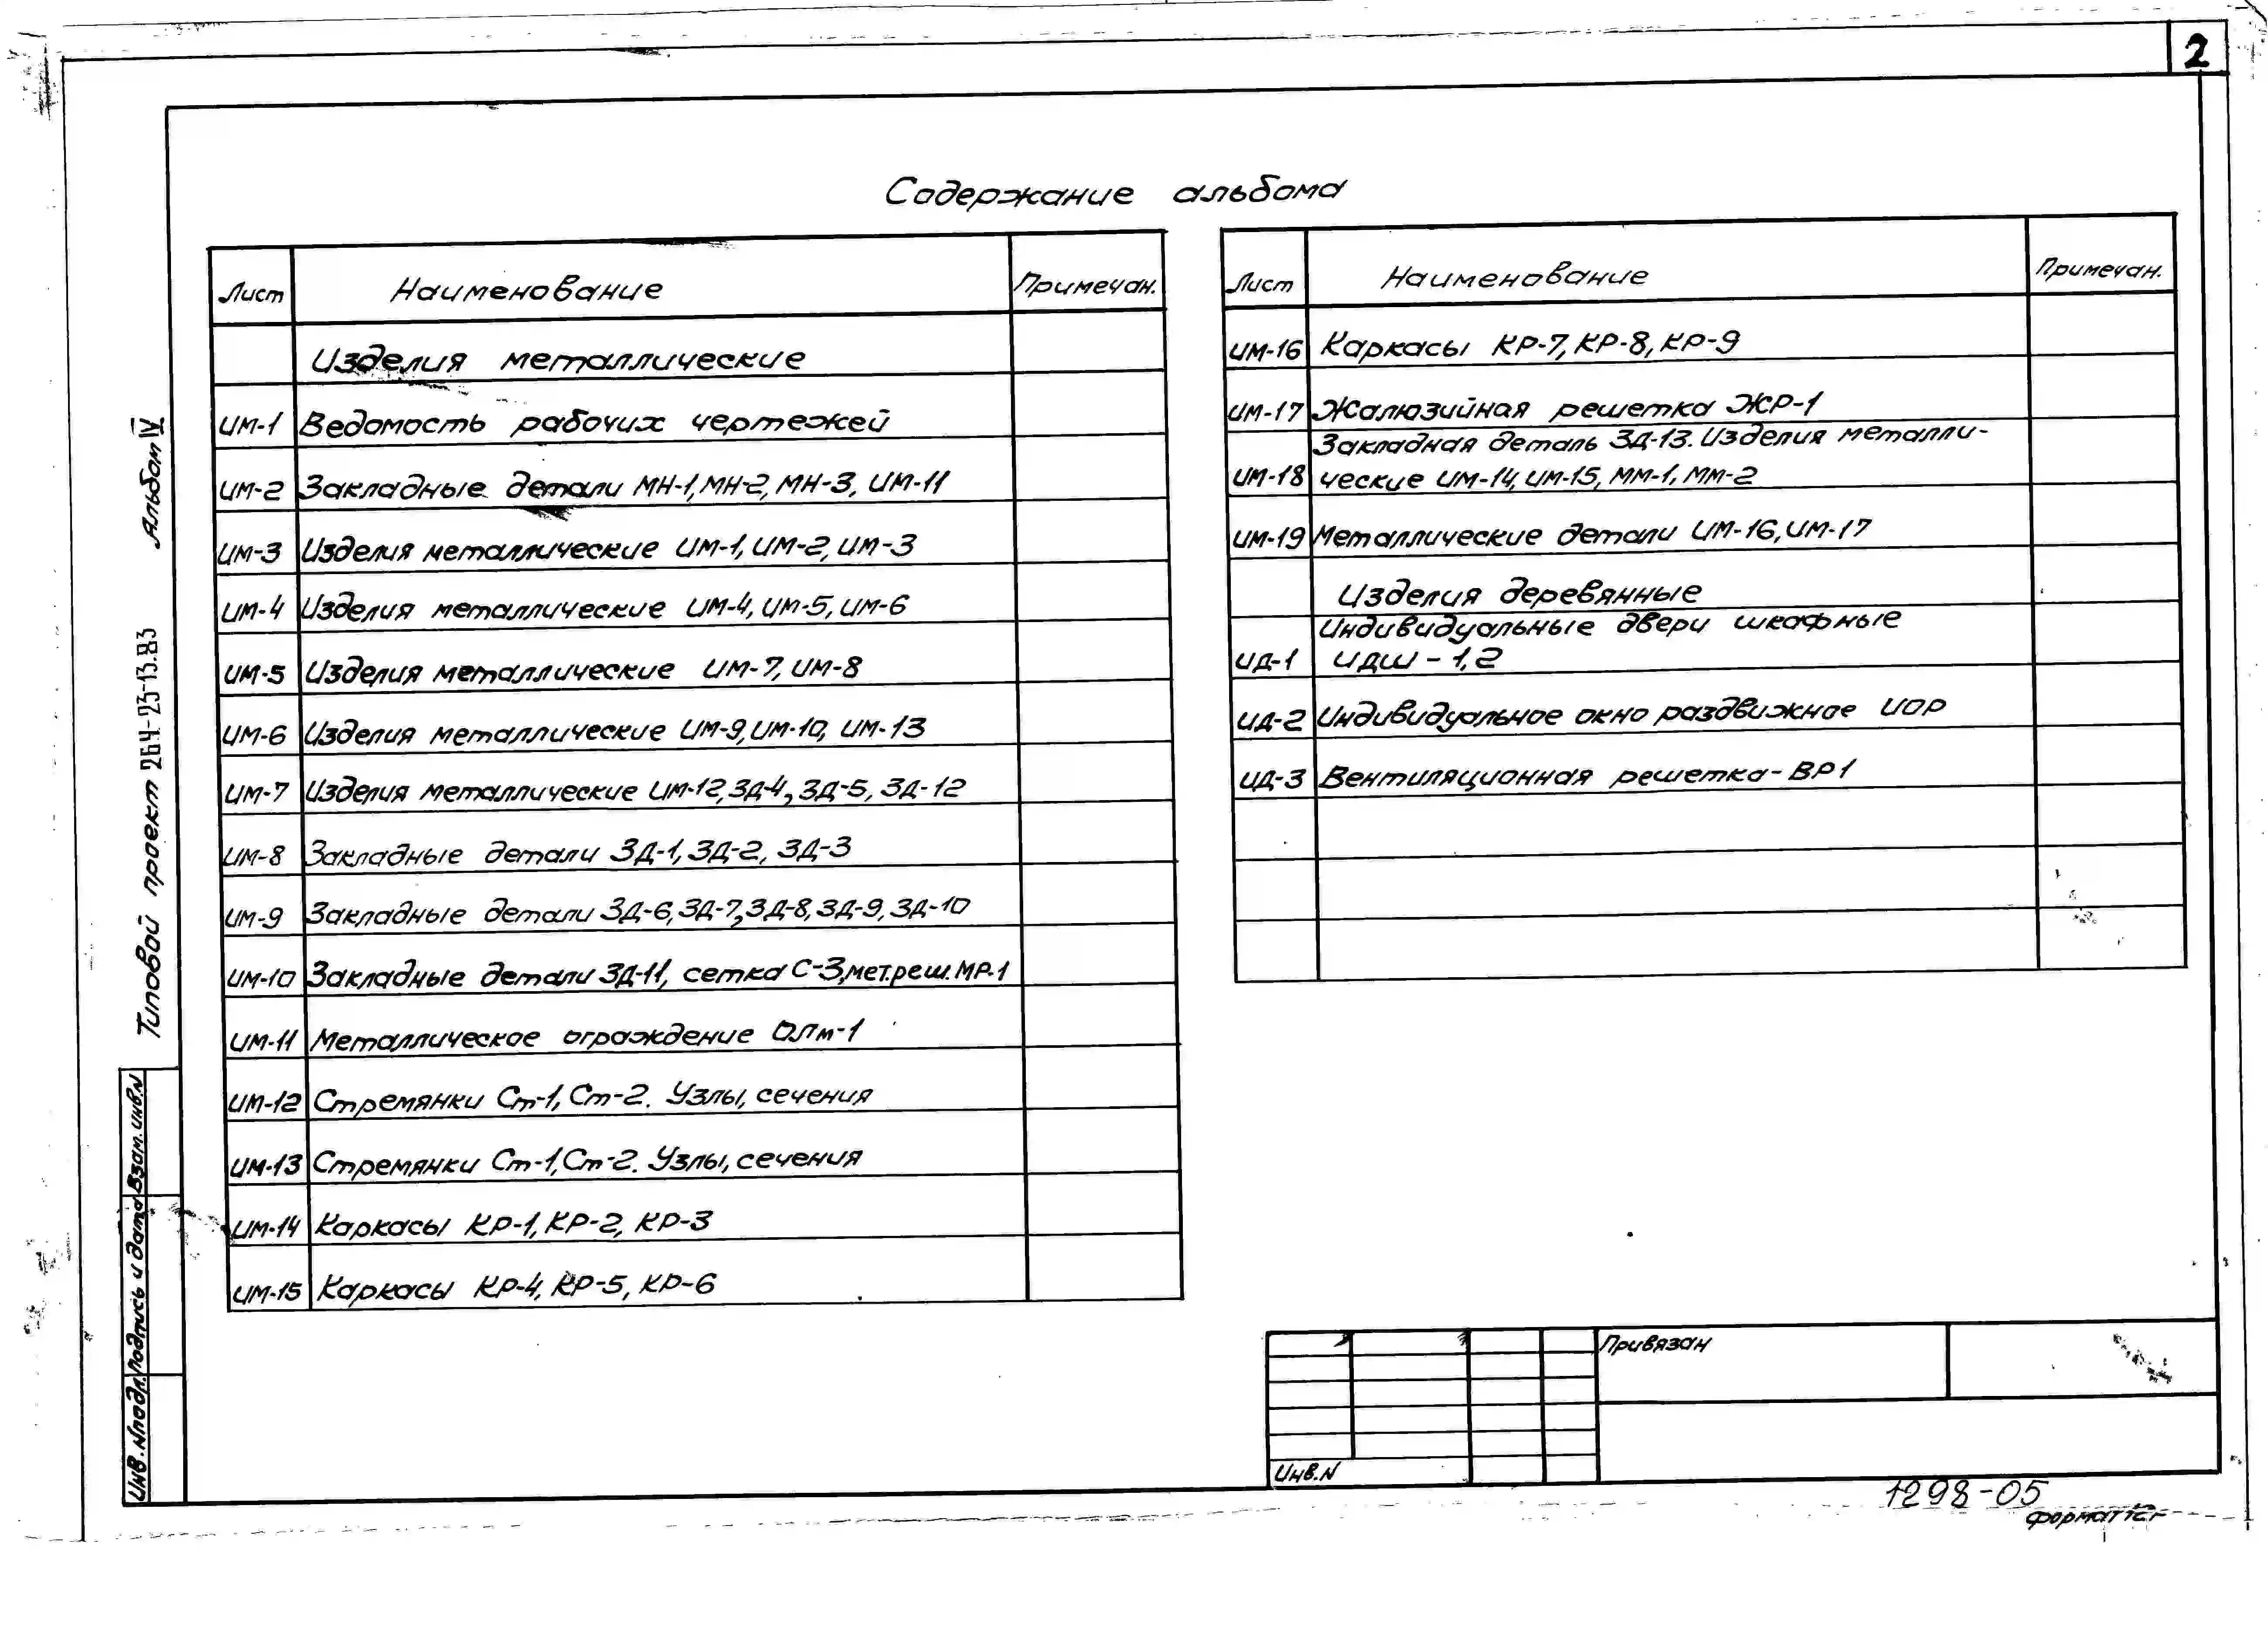 2
Содержание альбома
Лист Наименование Примечан.
Изделия металлические
ИМ-1 Ведомость рабочих чертежей
ИМ-2 Закладные детали МН-1, МН-2, МН-3, ИМ-11
ИМ-3 Изделия металлические ИМ-1, ИМ-2, ИМ-3
ИМ-4 Изделия металлические ИМ-4, ИМ-5, ИМ-6
ИМ-5 Изделия металлические ИМ-7, ИМ-8
ИМ-6 Изделия металлические ИМ-9, ИМ-10, ИМ-13
ИМ-7 Изделия металлические ИМ-12, ЗД-4, ЗД-5, ЗД-12
ИМ-8 Закладные детали ЗД-1, ЗД-2, ЗД-3
ИМ-9 Закладные детали ЗД-6, ЗД-7, ЗД-8, ЗД-9, ЗД-10
ИМ-10 Закладные детали ЗД-11, сетка С-3, мет.реш. МР-1
ИМ-11 Металлическое ограждение ОЛм-1
ИМ-12 Стремянки Ст-1, Ст-2. Узлы, сечения
ИМ-13 Стремянки Ст-1, Ст-2. Узлы, сечения
ИМ-14 Каркасы КР-1, КР-2, КР-3
ИМ-15 Каркасы КР-4, КР-5, КР-6
Лист Наименование Примечан.
ИМ-16 Каркасы КР-7, КР-8, КР-9
ИМ-17 Жалюзийная решетка ЖР-1
Закладная деталь ЗД-13. Изделия металли-
ИМ-18 ческие ИМ-14, ИМ-15, ММ-1, ММ-2
ИМ-19 Металлические детали ИМ-16, ИМ-17
Изделия деревянные
Индивидуальные двери шкафные
ИД-1 ИДШ-1,2
ИД-2 Индивидуальное окно раздвижное ИОР
ИД-3 Вентиляционная решетка-ВР1
Типовой проект 264-23-13.83 Альбом IV
Инв.Nподл. Подпись и дата Взам.инв.N
Привязан
Инв.N
1298-05
формат12г